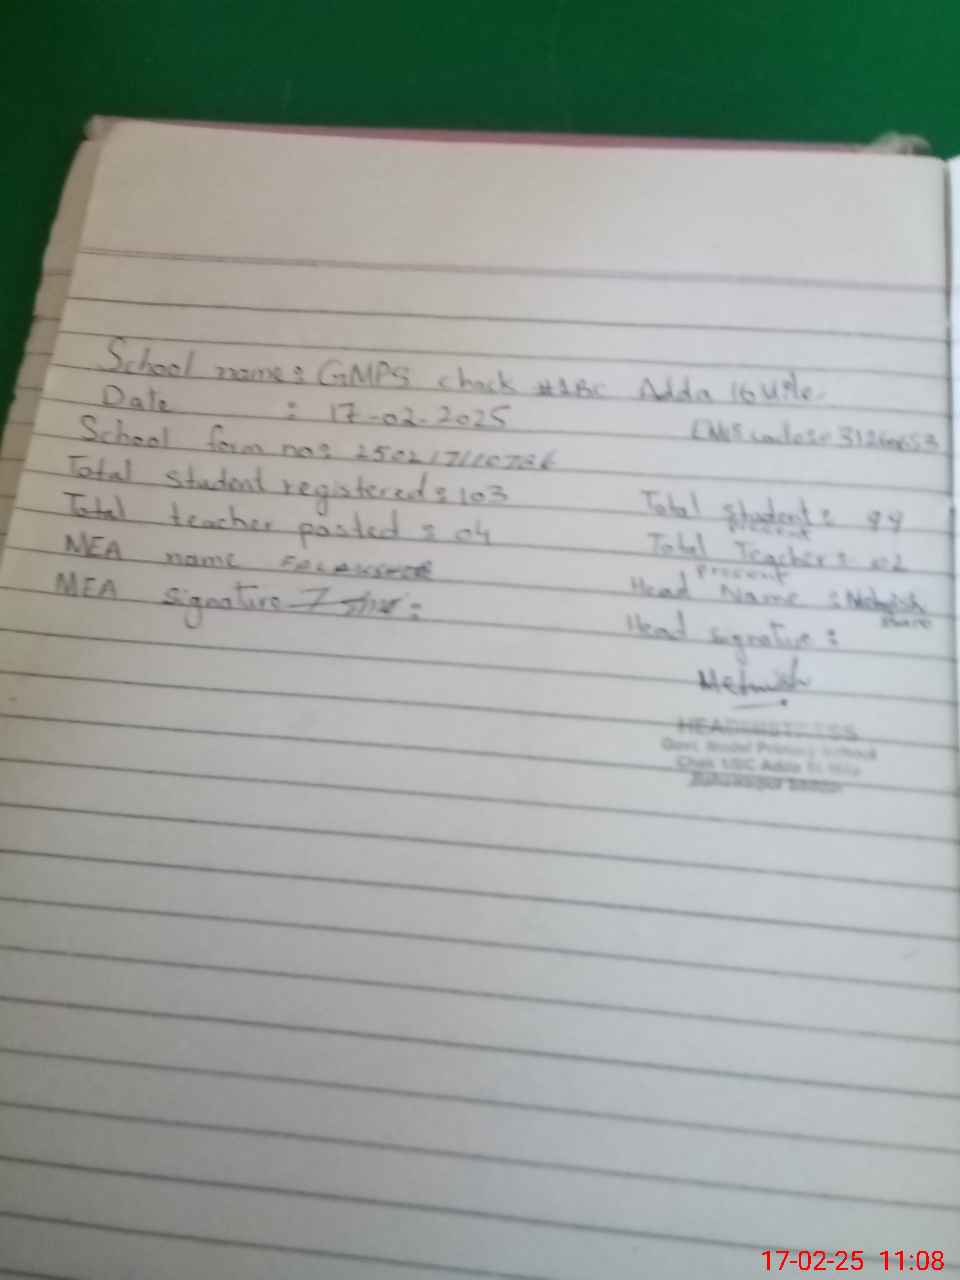 School name: GMPS chack #1BC Adda 16 Mile
Date : 17-02-2025
EMIS code:
School form no:
Total student registered: 103
Total student present: 99
Total teacher posted: 04
Total Teacher present: 02
MEA name
Head Name : Mehwish
MEA signature :
Head signature :
Mehwish
HEADMISTRESS
Govt. Model Primary School
Chak 1/BC Adda 16 Mile
Bahawalpur Saddar
17-02-25 11:08